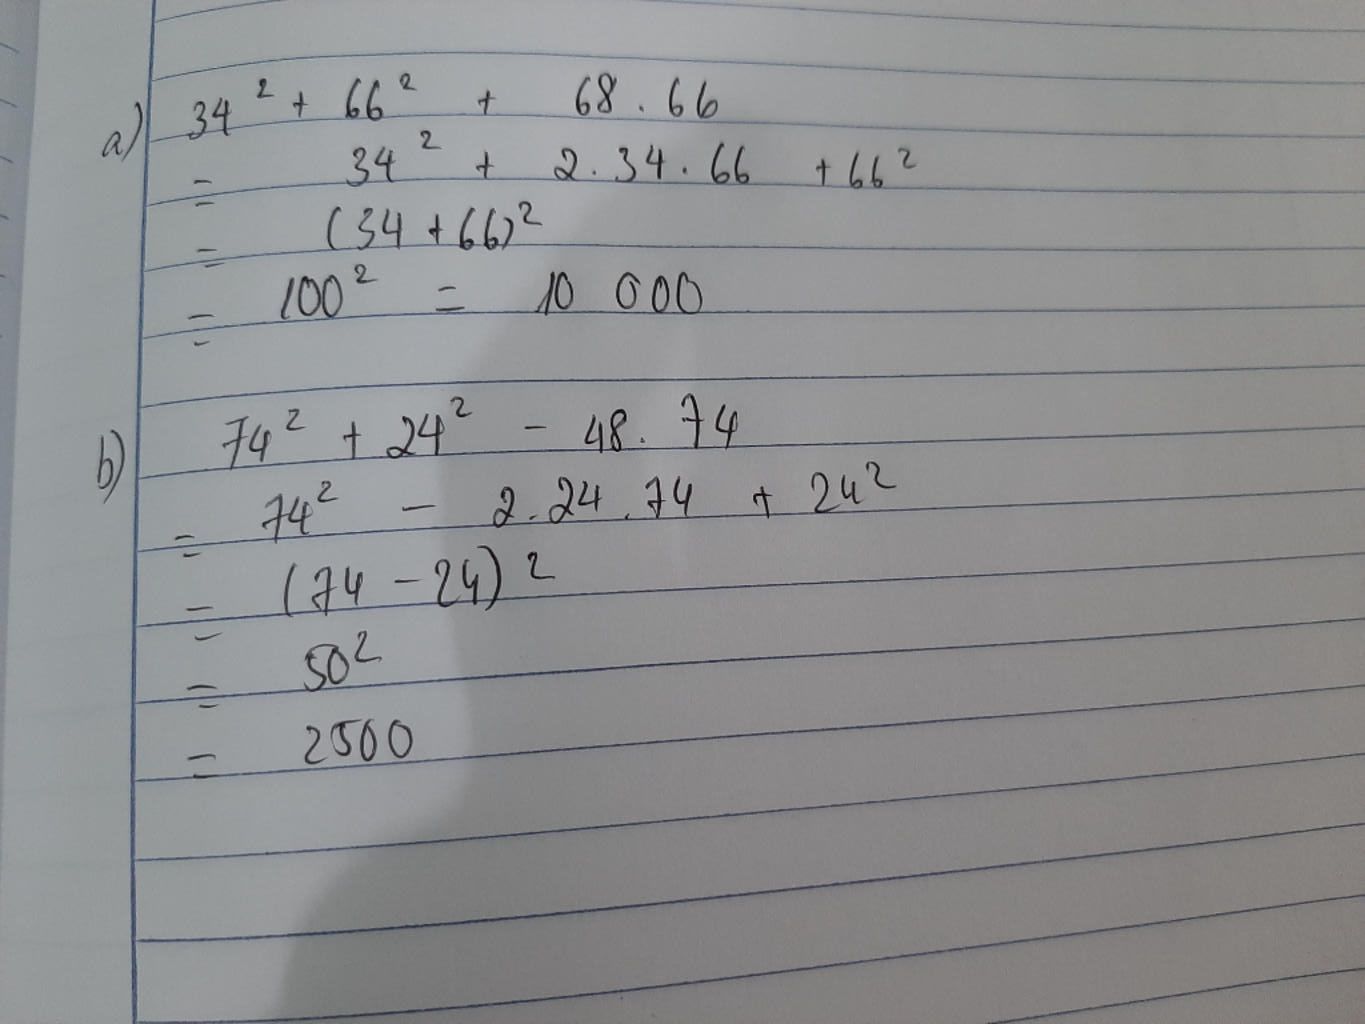 a) 34² + 66² + 68 . 66
= 34² + 2 . 34 . 66 + 66²
= (34 + 66)²
= 100² = 10 000
b) 74² + 24² - 48 . 74
= 74² - 2 . 24 . 74 + 24²
= (74 - 24)²
= 50²
= 2500